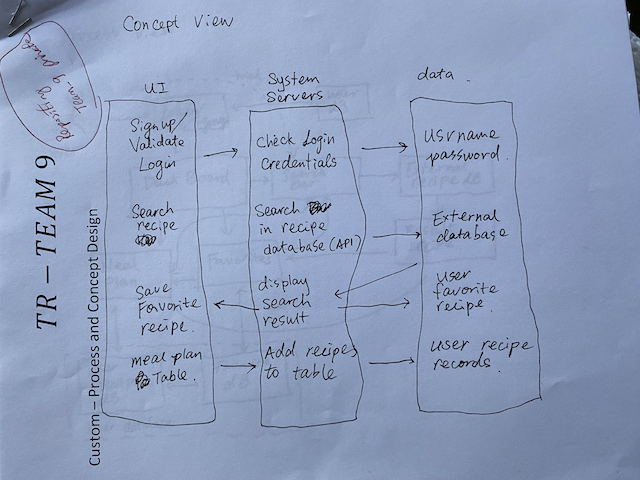 Concept View
Repositiny
Team_9 private
TR – TEAM 9
Custom – Process and Concept Design
UI
Sign up/
Validate
Login
Search
recipe
Save
Favorite
recipe.
meal plan
Table.
System
Servers
Check Login
Credentials
Search
in recipe
database (API)
display
search
result
Add recipes
to table
data.
Usrname
password.
External
database
User
favorite
recipe.
User recipe
records.